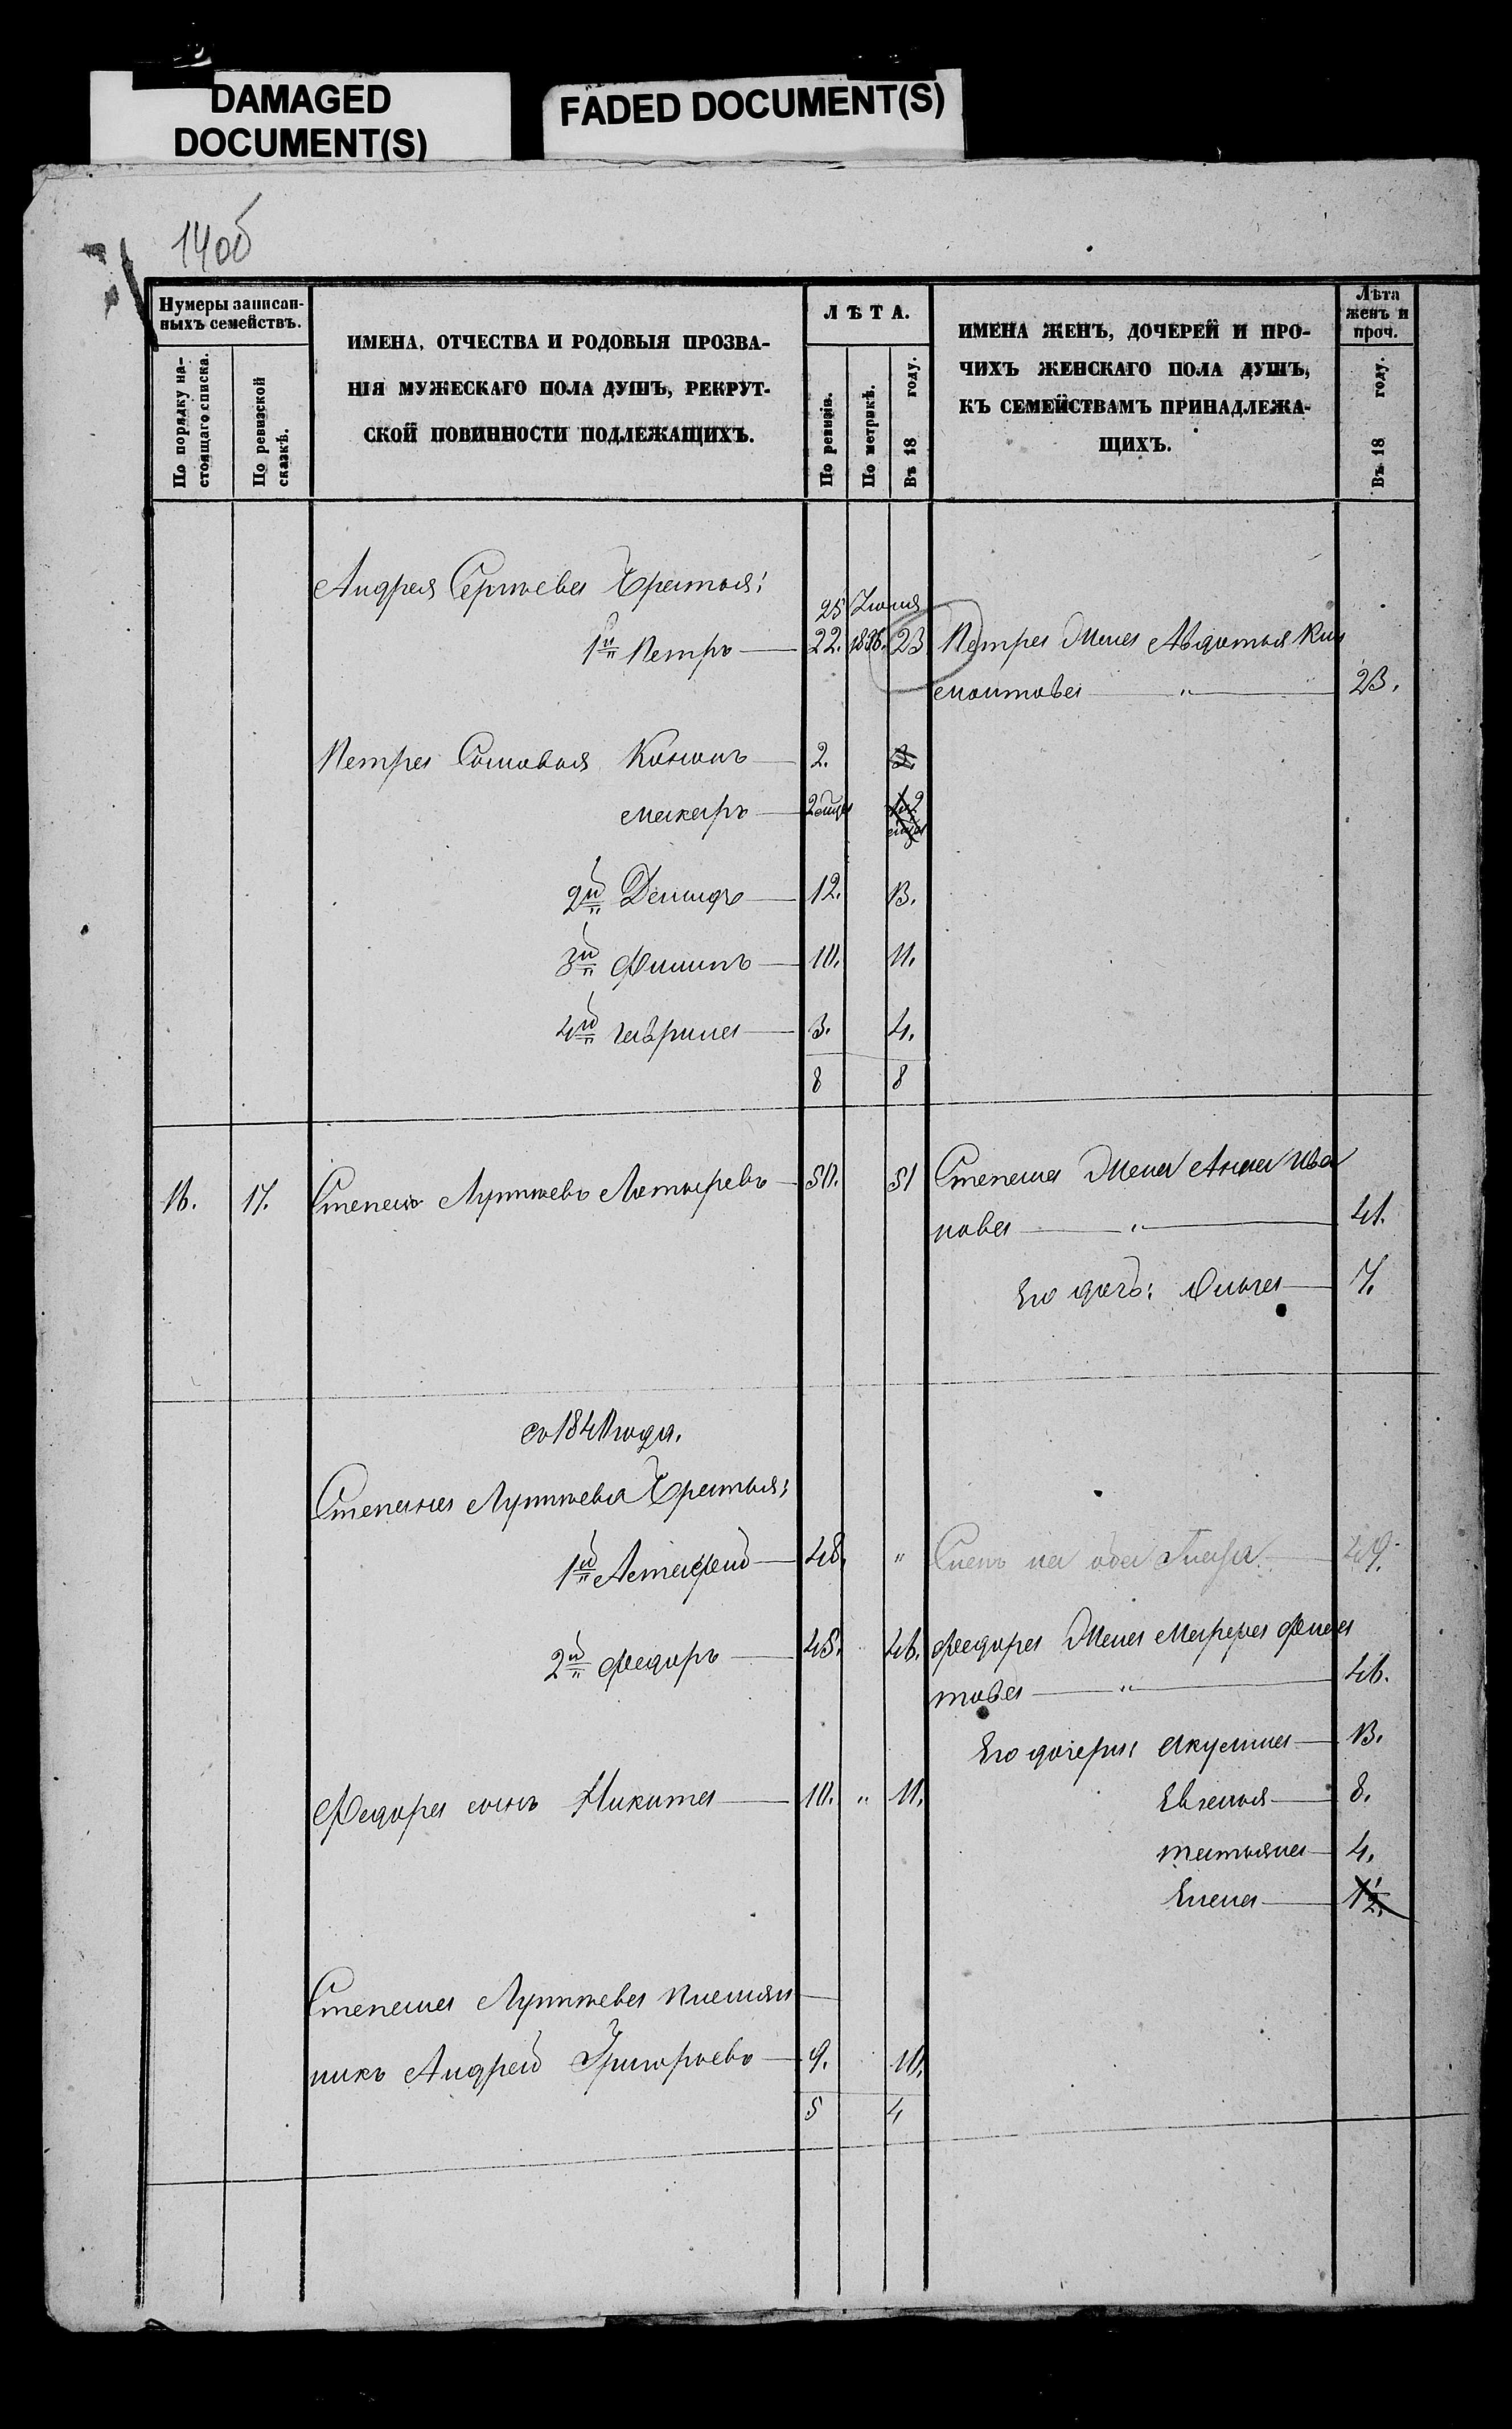 DAMAGED
DOCUMENT(S)
FADED DOCUMENT(S)
14об
Нумеры записан-
ныхъ семействъ.
По порядку на-
стоящаго списка.
По ревизской
сказкѣ.
ИМЕНА, ОТЧЕСТВА И РОДОВЫЯ ПРОЗВА-
НІЯ МУЖЕСКАГО ПОЛА ДУШЪ, РЕКРУТ-
СКОЙ ПОВИННОСТИ ПОДЛЕЖАЩИХЪ.
ЛѢТА.
По ревизіи.
По метрикѣ.
Въ 18 году.
ИМЕНА ЖЕНЪ, ДОЧЕРЕЙ И ПРО-
ЧИХЪ ЖЕНСКАГО ПОЛА ДУШЪ,
КЪ СЕМЕЙСТВАМЪ ПРИНАДЛЕЖА-
ЩИХЪ.
Лѣта
женъ и
проч.
Въ 18 году.
Андрея Сергѣева братья:
25 Іюня
1й Петръ 22. 23 Петра Жена Авдотья Кли
ментова " 23.
Петра Сыновья Кононъ 2. 3.
Макаръ 2 мца
2й Демидъ 12. 13.
3й Филипъ 10. 11.
4й Гаврила 3. 4.
8 8
16. 17. Степанъ Лупѣевъ Латыревъ 50. 51 Степана Жена Анна Ива
нова " 41.
Его дочь: Ольга 7.
съ 1840 года.
Степана Лупѣева братья:
1й Астафей 48. "
49.
2й Федоръ 45. 46. Федора Жена Марфа Фила
това " 46.
Его дочери: Акулина 13.
Федора сынъ Никита 10. " 11. Евгенья 8.
Татьяна 4.
Елена 1½.
Степана Лупѣева племян
никъ Андрей Григорьевъ 9. 10.
5 4